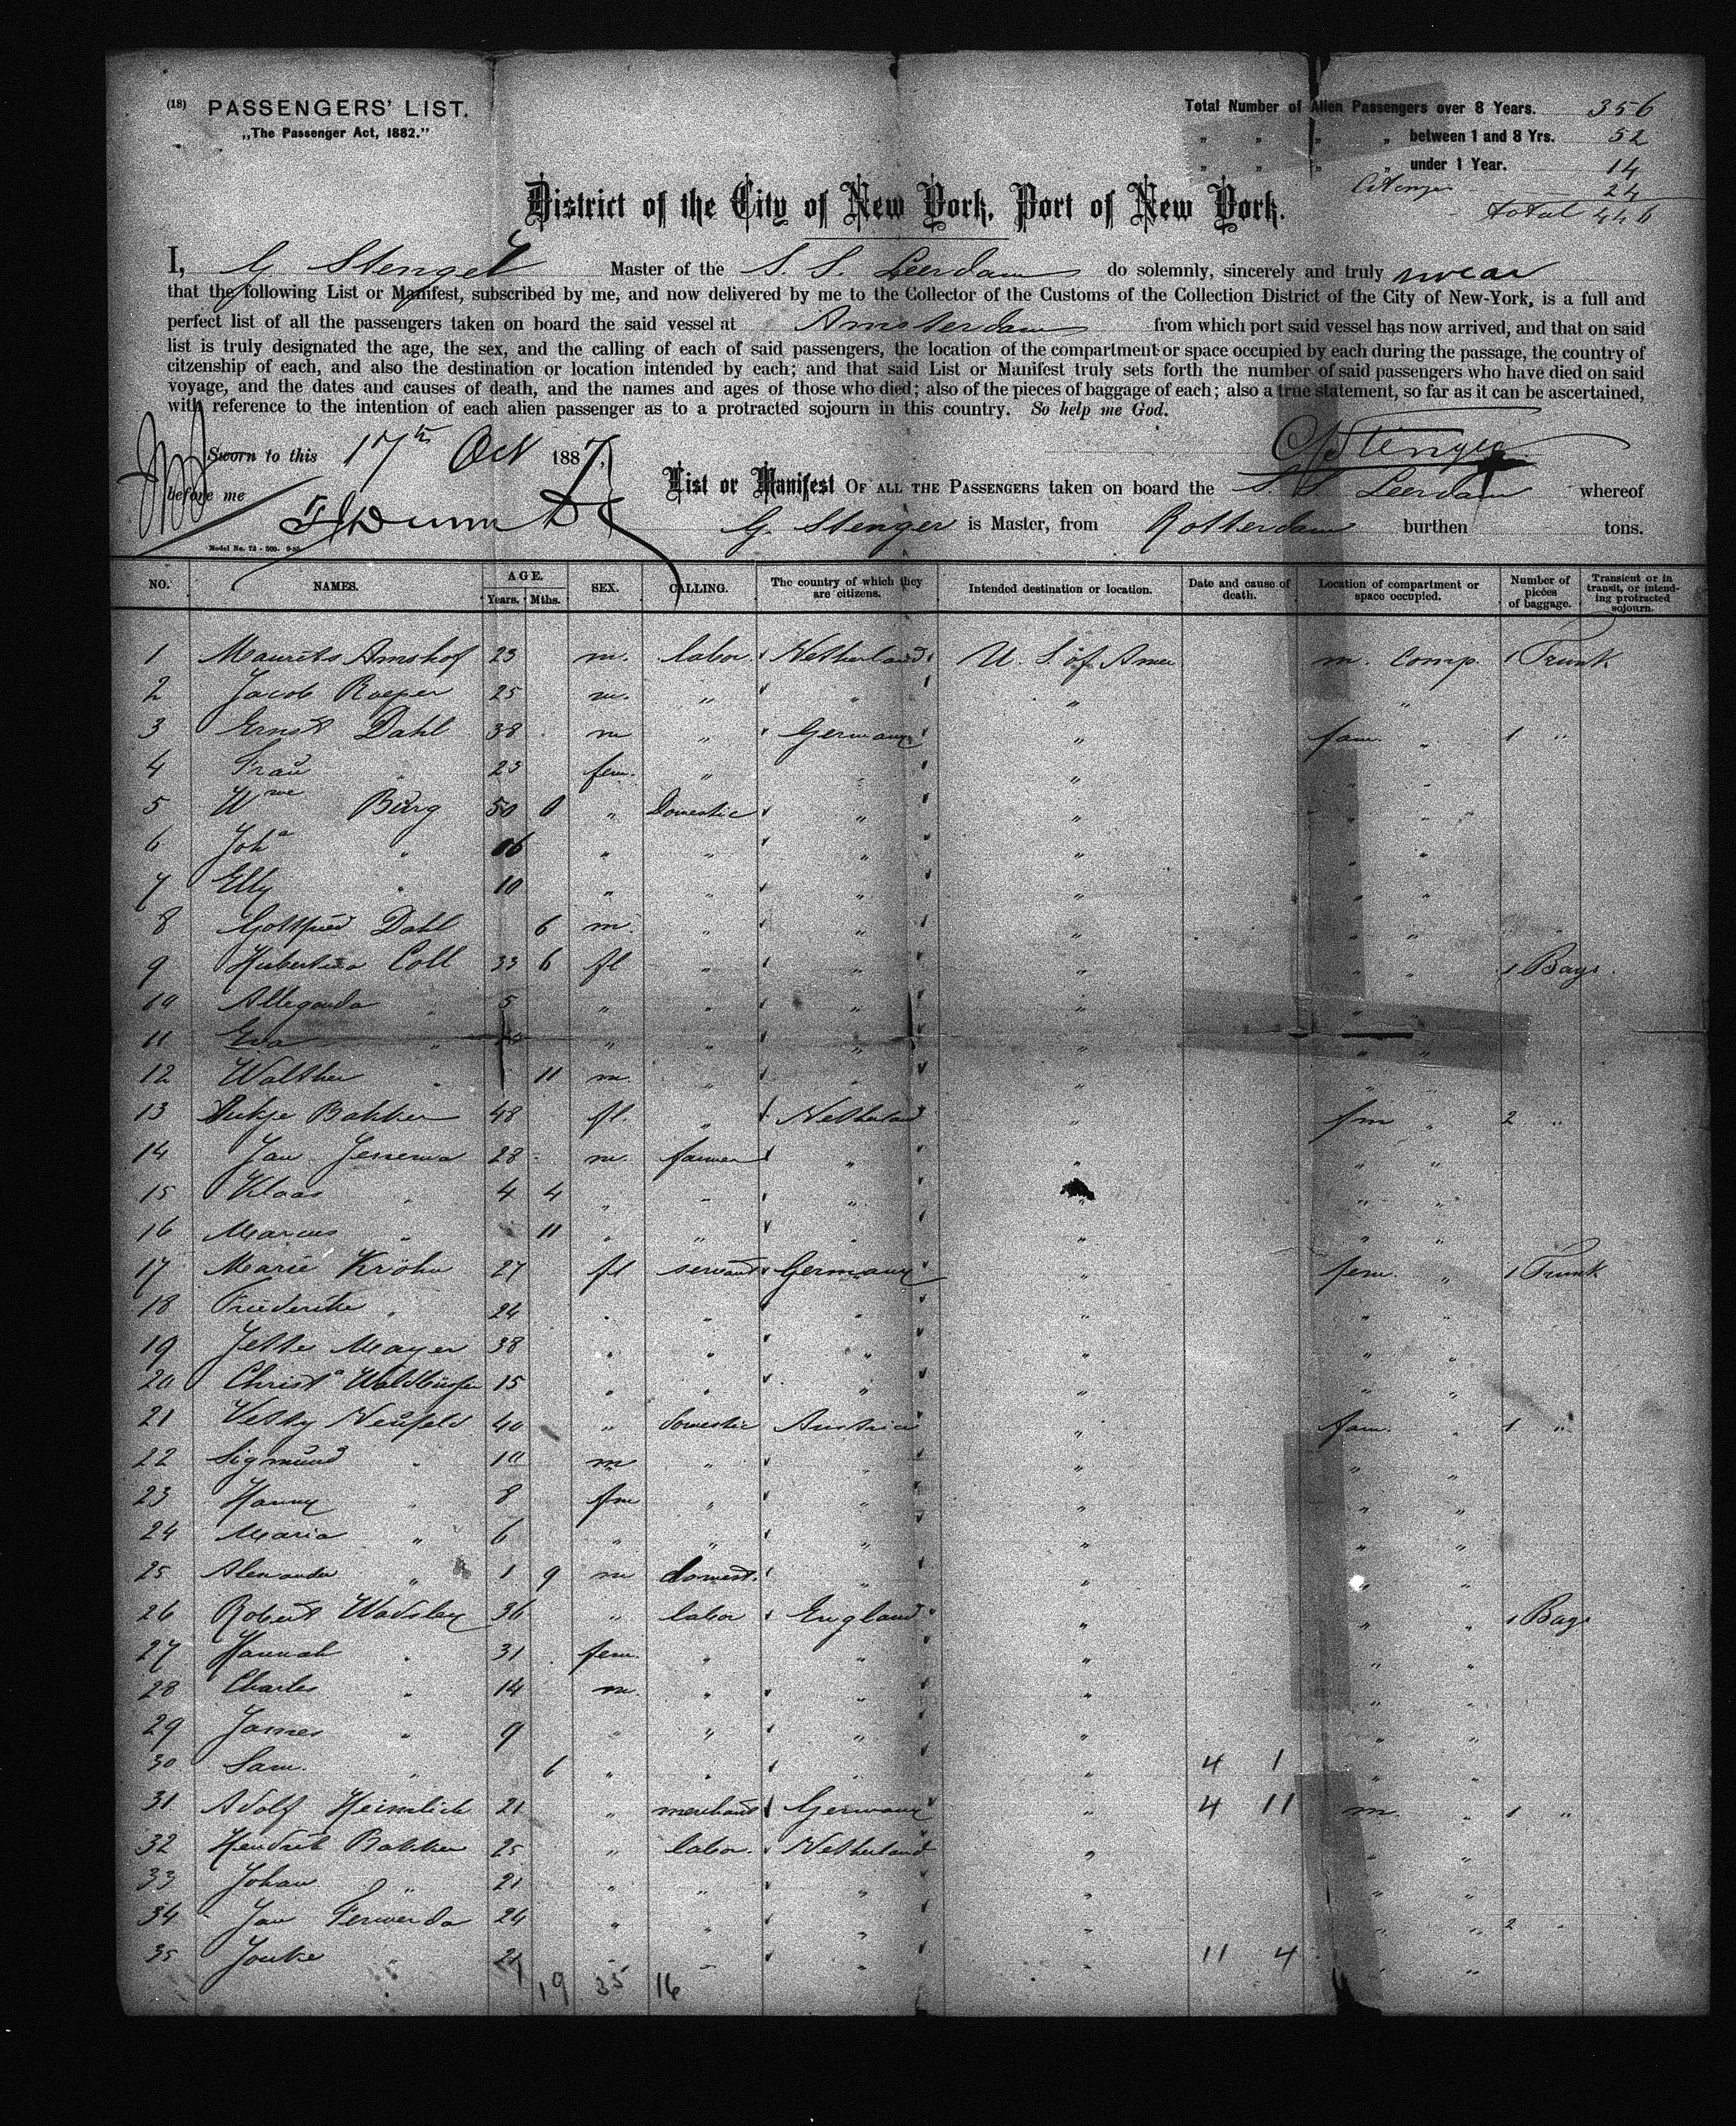 (18) PASSENGERS' LIST.
„The Passenger Act, 1882."
Total Number of Alien Passengers over 8 Years. 356
„ „ „ „ between 1 and 8 Yrs. 52
„ „ „ „ under 1 Year. 14
24
total 446
District of the City of New York, Port of New York.
I, G Stenger Master of the S. S. Leerdam do solemnly, sincerely and truly swear
that the following List or Manifest, subscribed by me, and now delivered by me to the Collector of the Customs of the Collection District of the City of New-York, is a full and
perfect list of all the passengers taken on board the said vessel at Amsterdam from which port said vessel has now arrived, and that on said
list is truly designated the age, the sex, and the calling of each of said passengers, the location of the compartment or space occupied by each during the passage, the country of
citzenship of each, and also the destination or location intended by each; and that said List or Manifest truly sets forth the number of said passengers who have died on said
voyage, and the dates and causes of death, and the names and ages of those who died; also of the pieces of baggage of each; also a true statement, so far as it can be ascertained,
with reference to the intention of each alien passenger as to a protracted sojourn in this country. So help me God.
Sworn to this 17th Oct 1887 G Stenger
before me
List or Manifest OF ALL THE PASSENGERS taken on board the S. S. Leerdam whereof
G. Stenger is Master, from Rotterdam burthen tons.
Model No. 72 - 500. 9-85
NO. NAMES. AGE. Years. Mths. SEX. CALLING. The country of which they are citizens. Intended destination or location. Date and cause of death. Location of compartment or space occupied. Number of pieces of baggage. Transient or in transit, or intending protracted sojourn.
1 Maurits Arnshof 23 m. labor. Netherland U. S. of Amer m. comp. 1 Trunk
2 Jacob Roeper 25 m. „ „ „ „
3 Ernst Dahl 38 m „ Germany „ fam. „ 1 „
4 Frau „ 23 fem. „ „ „ „ „
5 Wwe Burg 50 0 „ Domestic „ „ „ „
6 Joha „ 16 „ „ „ „ „ „
7 Elly „ 10 „ „ „ „ „ „
8 Gottfried Dahl 6 m. „ „ „ „ „
9 Hubertina Coll 33 6 fl „ „ „ „ „ 1 Bags
10 Allegonda „ 5 „ „ „ „ „ „
11 Eva „ „ „ „ „ „ „
12 Walther „ 11 m. „ „ „ „ „
13 Bakker 48 fl. „ Netherland „ fm „ 2 „
14 Jan Jensema 28 m. farmer „ „ „ „
15 Klaas „ 4 4 „ „ „ „ „ „
16 Marcus „ 11 „ „ „ „ „ „
17 Marie Krohn 27 fl servant Germany „ fem. „ 1 Trunk
18 Friederike „ 24 „ „ „ „ „ „
19 Jette Mayer 38 „ „ „ „ „ „
20 Christa 15 „ „ „ „ „ „
21 Vetty Neufeld 40 „ domestic Austria „ fam. „ 1 „
22 Sigmund „ 10 m „ „ „ „ „
23 Hanny „ 8 fm „ „ „ „ „
24 Maria „ 6 „ „ „ „ „ „
25 Alexander „ 1 9 m domest. „ „ „ „
26 Robert Wadsley 36 „ labor England „ „ „ 1 Bags
27 Hannah „ 31 fem. „ „ „ „ „
28 Charles „ 14 m. „ „ „ „ „
29 James „ 9 „ „ „ „ „ „
30 Sam. „ 6 „ „ „ „ 4 1 „ „
31 Adolf Heimlich 21 „ merchant Germany „ 4 11 m. „ 1 „
32 Hendrik Bakker 25 „ labor. Netherland „ „ „
33 Johan „ 21 „ „ „ „ „ „
34 Jan Ferwerda 24 „ „ „ „ „ „ 2 „
35 Jouke „ 21 „ „ „ „ 11 4 „ „
19 35 16